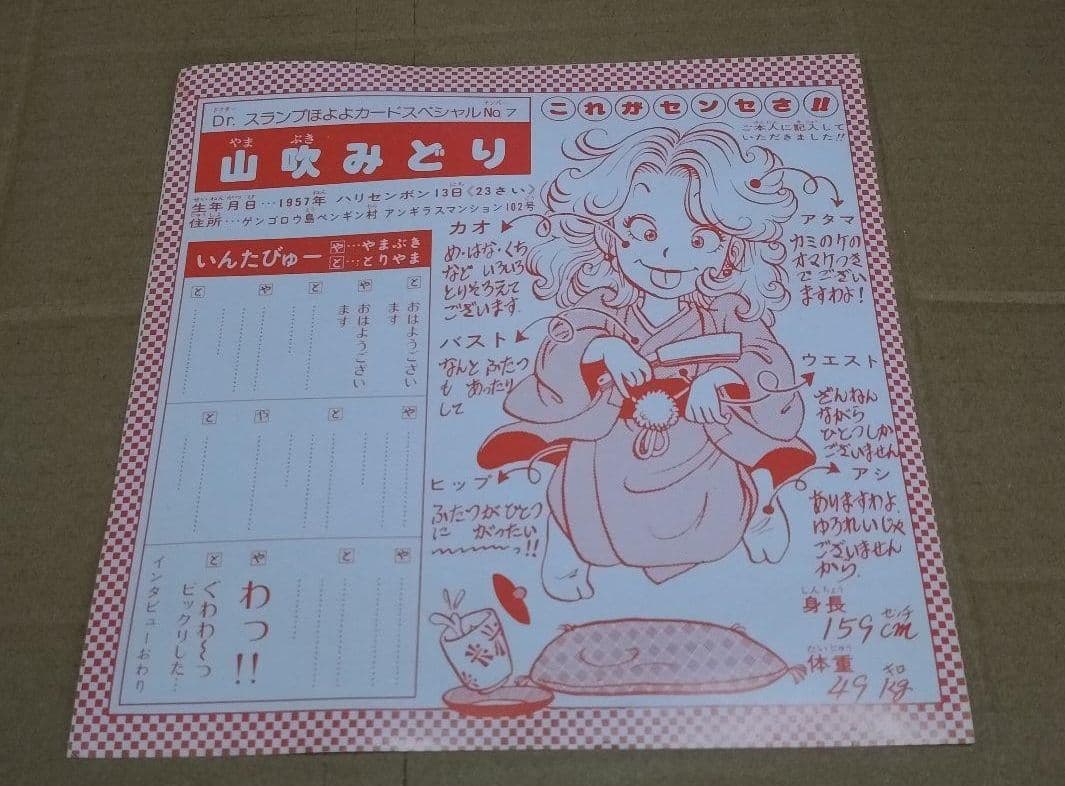 Dr. スランプほよよカードスペシャル No.7
ドクター
ナンバー
山吹みどり
やま ぶき
生年月日…1957年 ハリセンボン13日《23さい》
住所…ゲンゴロウ島ペンギン村 アンギラスマンション102号
いんたびゅー
や…やまぶき
と…とりやま
と
おはようござい
ます
や
おはようござい
ます
と
………
や
………
と
………
や
………
と
………
や
………
と
………
や
………
と
………
や
わっ!!
と
ぐわわ〜っ
ビックリした…
インタビューおわり
これがセンセさ!!
ご本人に記入して
いただきました!!
アタマ
カミのケの
オマケつき
でござい
ますわよ!
カオ
め・はな・くち
など いろいろ
とりそろえて
ございます.
バスト
なんと ふたつ
も あったり
して
ウエスト
ざんねん
ながら
ひとつしか
ございません
ヒップ
ふたつがひとつ
に がったい
〜〜〜っ!!
アシ
ありますわよ.
ゆうれいじゃ
ございません
から.
しんちょう
身長
159cm
センチ
たいじゅう
体重
49kg
キロ